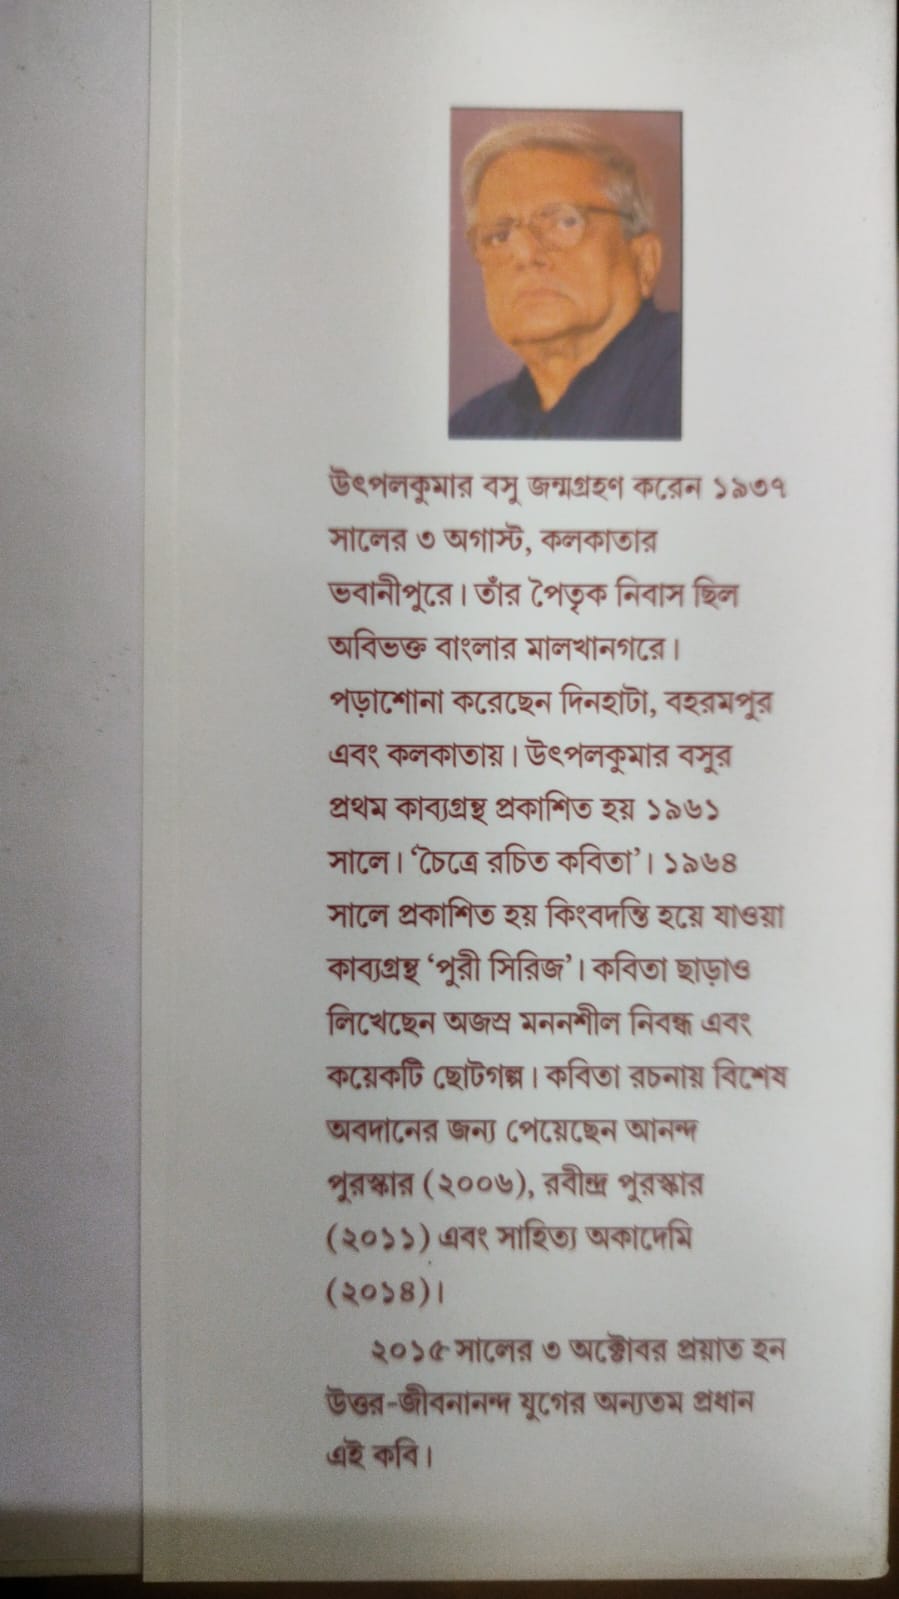 উৎপলকুমার বসু জন্মগ্রহণ করেন ১৯৩৭
সালের ৩ অগাস্ট, কলকাতার
ভবানীপুরে। তাঁর পৈতৃক নিবাস ছিল
অবিভক্ত বাংলার মালখানগরে।
পড়াশোনা করেছেন দিনহাটা, বহরমপুর
এবং কলকাতায়। উৎপলকুমার বসুর
প্রথম কাব্যগ্রন্থ প্রকাশিত হয় ১৯৬১
সালে। ‘চৈত্রে রচিত কবিতা’। ১৯৬৪
সালে প্রকাশিত হয় কিংবদন্তি হয়ে যাওয়া
কাব্যগ্রন্থ ‘পুরী সিরিজ’। কবিতা ছাড়াও
লিখেছেন অজস্র মননশীল নিবন্ধ এবং
কয়েকটি ছোটগল্প। কবিতা রচনায় বিশেষ
অবদানের জন্য পেয়েছেন আনন্দ
পুরস্কার (২০০৬), রবীন্দ্র পুরস্কার
(২০১১) এবং সাহিত্য অকাদেমি
(২০১৪)।
২০১৫ সালের ৩ অক্টোবর প্রয়াত হন
উত্তর-জীবনানন্দ যুগের অন্যতম প্রধান
এই কবি।